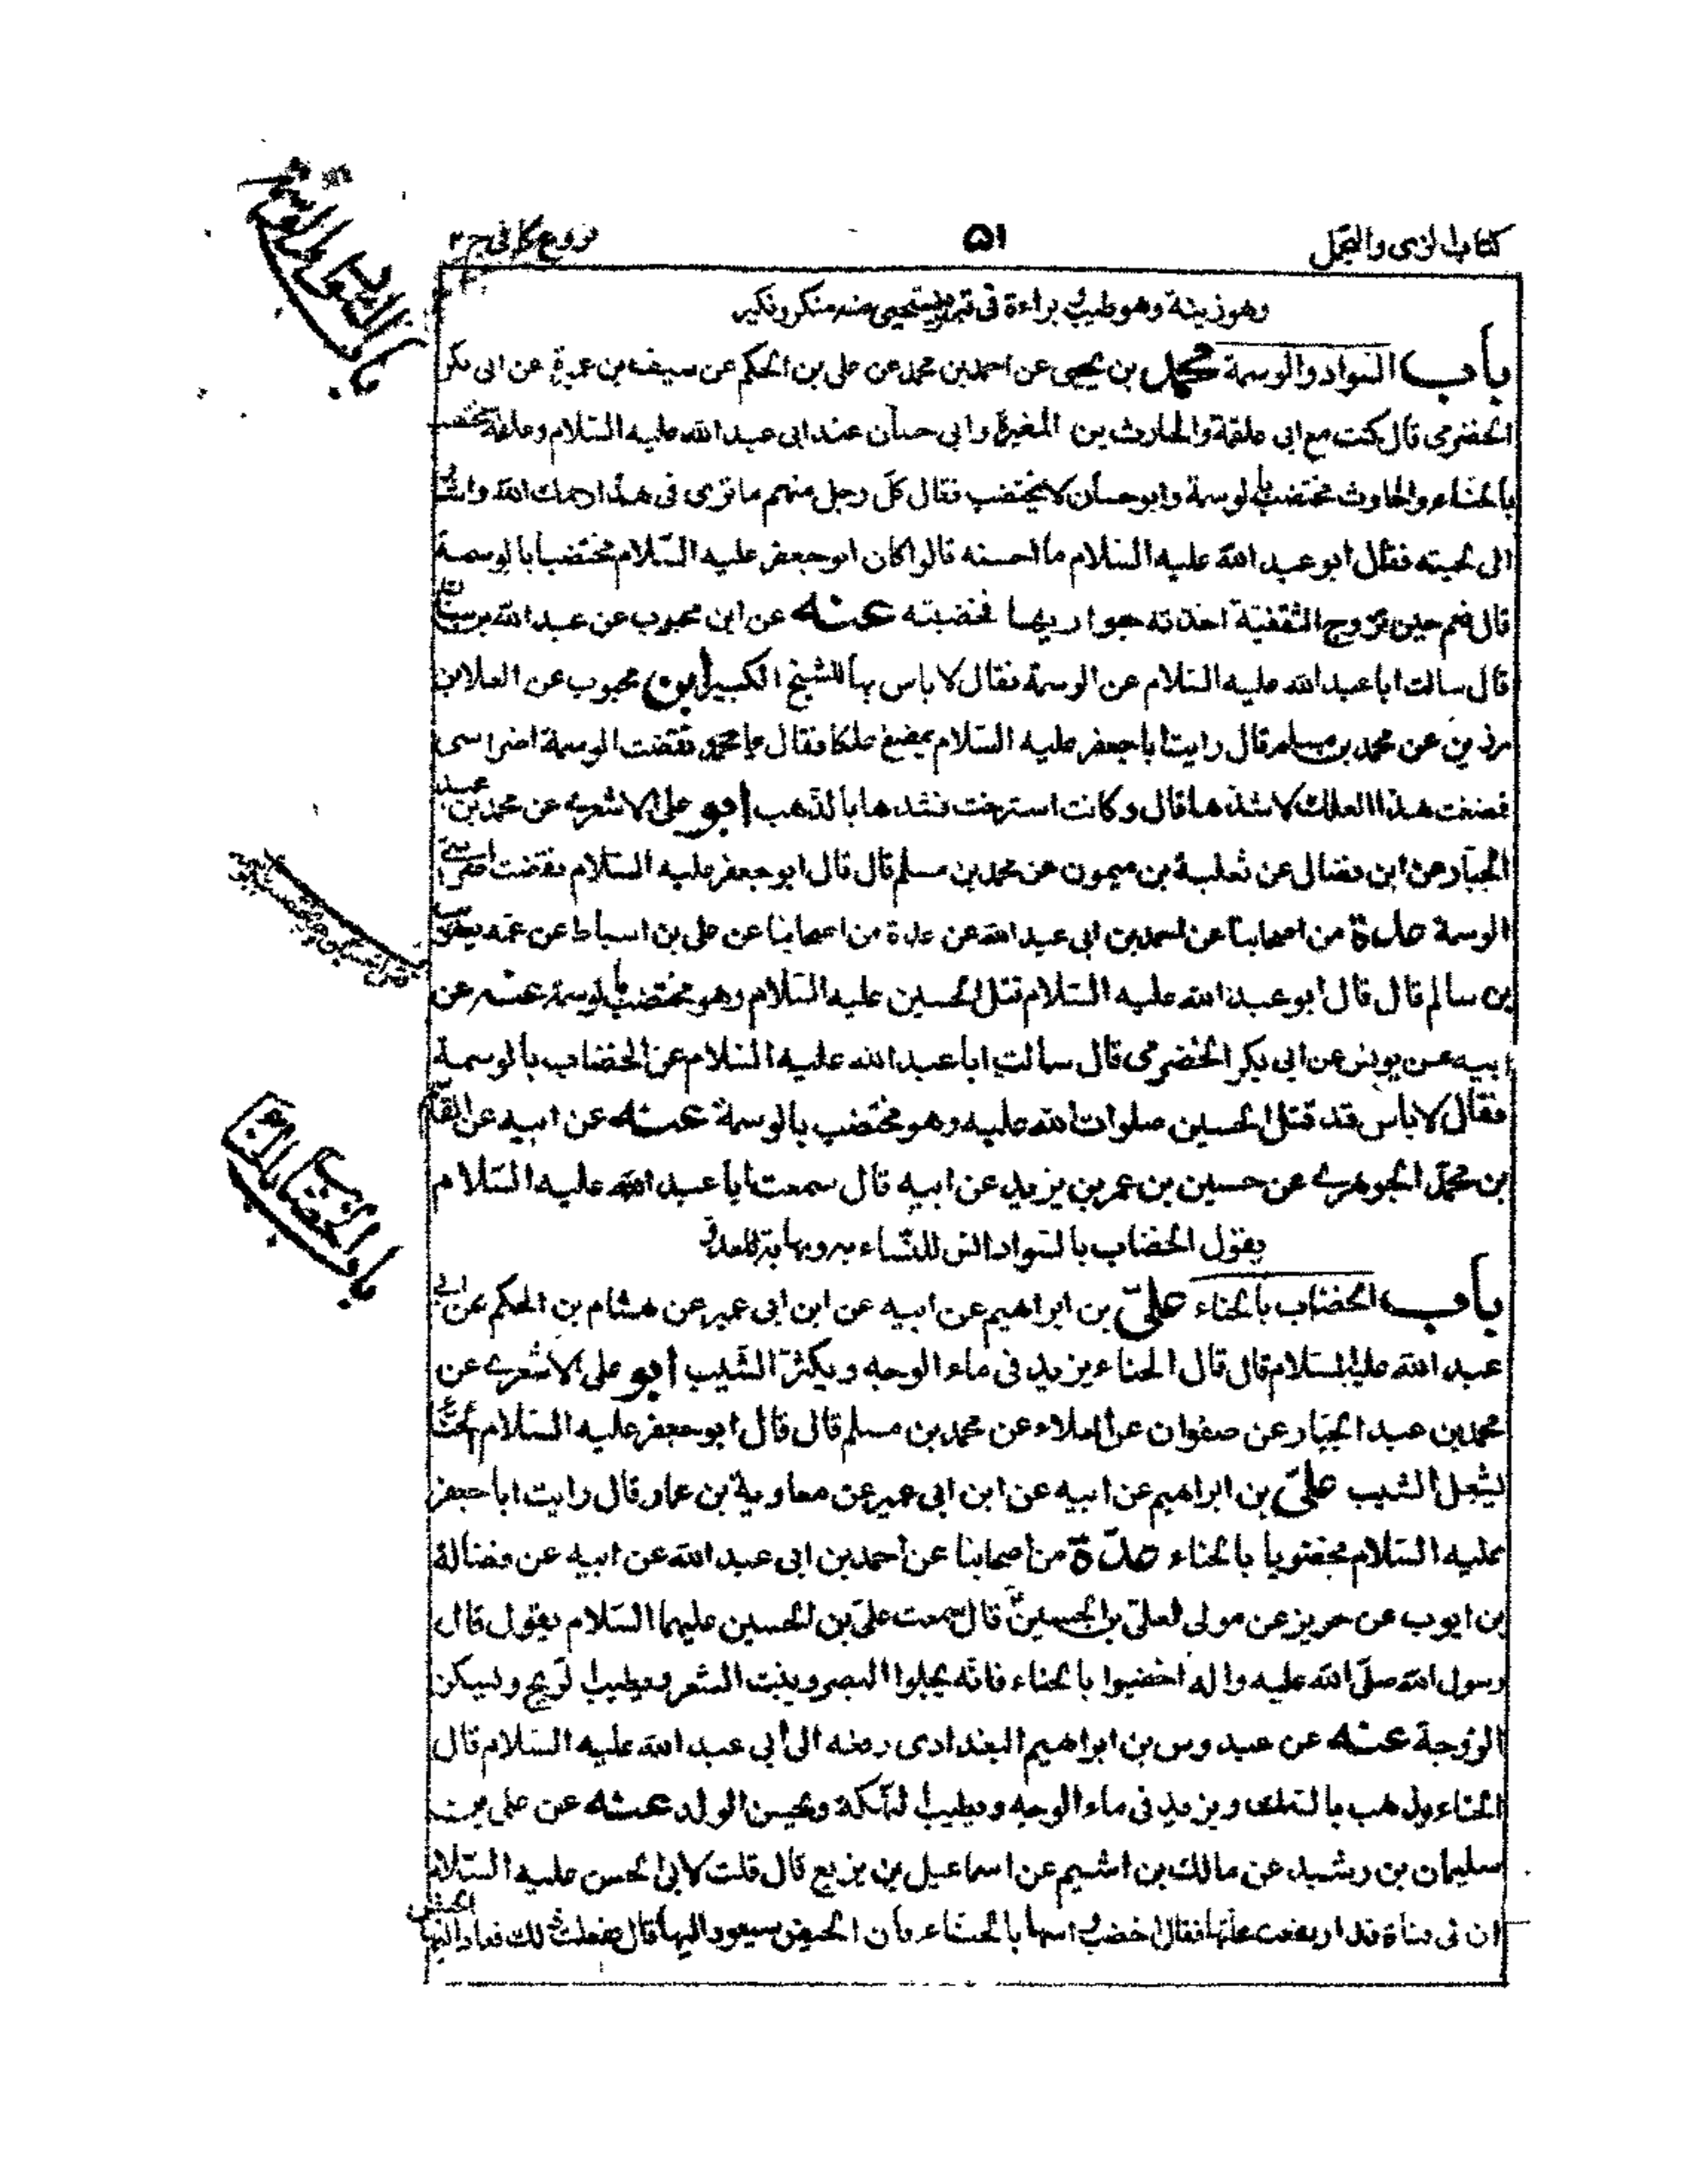 كتاب الزى والتجمل
٥١
فروع كافى ج ٢
وهو زينة وهو طيب وبراءة فى قبره ويستحيى منه منكر ونكير
باب السواد والوسمة محمد بن يحيى عن احمد بن محمد عن على بن الحكم عن سيف بن عميرة عن ابى بكر
الحضرمى قال كنت مع ابى علقمة والحارث بن المغيرة وابى حسان عند ابى عبد الله عليه السلام وعلقمة مختضب
بالحناء والحارث مختضب بالوسمة وابو حسان لا يختضب فقال كل رجل منهم ما ترى فى هذا رحمك الله واشار
الى لحيته فقال ابو عبد الله عليه السلام ما احسنه قالوا كان ابو جعفر عليه السلام مختضبا بالوسمة
قال نعم حين تزوج الثقفية اخذته جواريها فخضبته عنه عن ابن محبوب عن عبد الله بن سنان
قال سالت ابا عبد الله عليه السلام عن الوسمة فقال لا باس بها للشيخ الكبير ابن محبوب عن العلا بن
رزين عن محمد بن مسلم قال رايت ابا جعفر عليه السلام يمضغ علكا فقال يا محمد نقضت الوسمة اضراسى
فمضغت هذا العلك لاشدها قال وكانت استرخت فشدها بالذهب ابو على الاشعرى عن محمد بن عبد
الجبار عن ابن فضال عن ثعلبة بن ميمون عن محمد بن مسلم قال قال ابو جعفر عليه السلام نقضت اضراسى
الوسمة عدة من اصحابنا عن احمد بن ابى عبد الله عن عدة من اصحابنا عن على بن اسباط عن عمه يعقوب
بن سالم قال قال ابو عبد الله عليه السلام قتل الحسين عليه السلام وهو مختضب بالوسمة عنه عن
ابيه عن يونس عن ابى بكر الحضرمى قال سالت ابا عبد الله عليه السلام عن الخضاب بالوسمة
فقال لا باس قد قتل الحسين صلوات الله عليه وهو مختضب بالوسمة عنه عن ابيه عن القاسم
بن محمد الجوهرى عن حسين بن عمر بن يزيد عن ابيه قال سمعت ابا عبد الله عليه السلام
يقول الخضاب بالسواد انس للنساء ومهابة للعدو
باب الخضاب بالحناء على بن ابراهيم عن ابيه عن ابن ابى عمير عن هشام بن الحكم عن ابى
عبد الله عليه السلام قال قال الحناء يزيد فى ماء الوجه ويكثر الشيب ابو على الاشعرى عن
محمد بن عبد الجبار عن صفوان عن العلاء عن محمد بن مسلم قال قال ابو جعفر عليه السلام الحناء
يشعل الشيب على بن ابراهيم عن ابيه عن ابن ابى عمير عن معاوية بن عمار قال رايت ابا جعفر
عليه السلام مخضوبا بالحناء عدة من اصحابنا عن احمد بن ابى عبد الله عن ابيه عن فضالة
بن ايوب عن حريز عن مولى لعلى بن الحسين قال سمعت على بن الحسين عليهما السلام يقول قال
رسول الله صلى الله عليه واله اخضبوا بالحناء فانه يجلوا البصر وينبت الشعر ويطيب الريح ويسكن
الزوجة عنه عن عبدوس بن ابراهيم البغدادى رفعه الى ابى عبد الله عليه السلام قال
الحناء يذهب بالسهك ويزيد فى ماء الوجه ويطيب النكهة ويحسن الولد عنه عن على بن
سليمان بن رشيد عن مالك بن اشيم عن اسماعيل بن بزيع قال قلت لابى الحسن عليه السلام
ان لى فتاة قد ارتفعت علتها فقال اخضب راسها بالحناء فان الحيض سيعود اليها قال ففعلت ذلك فعاد اليها
الحيض
باب الخضاب بالحناء